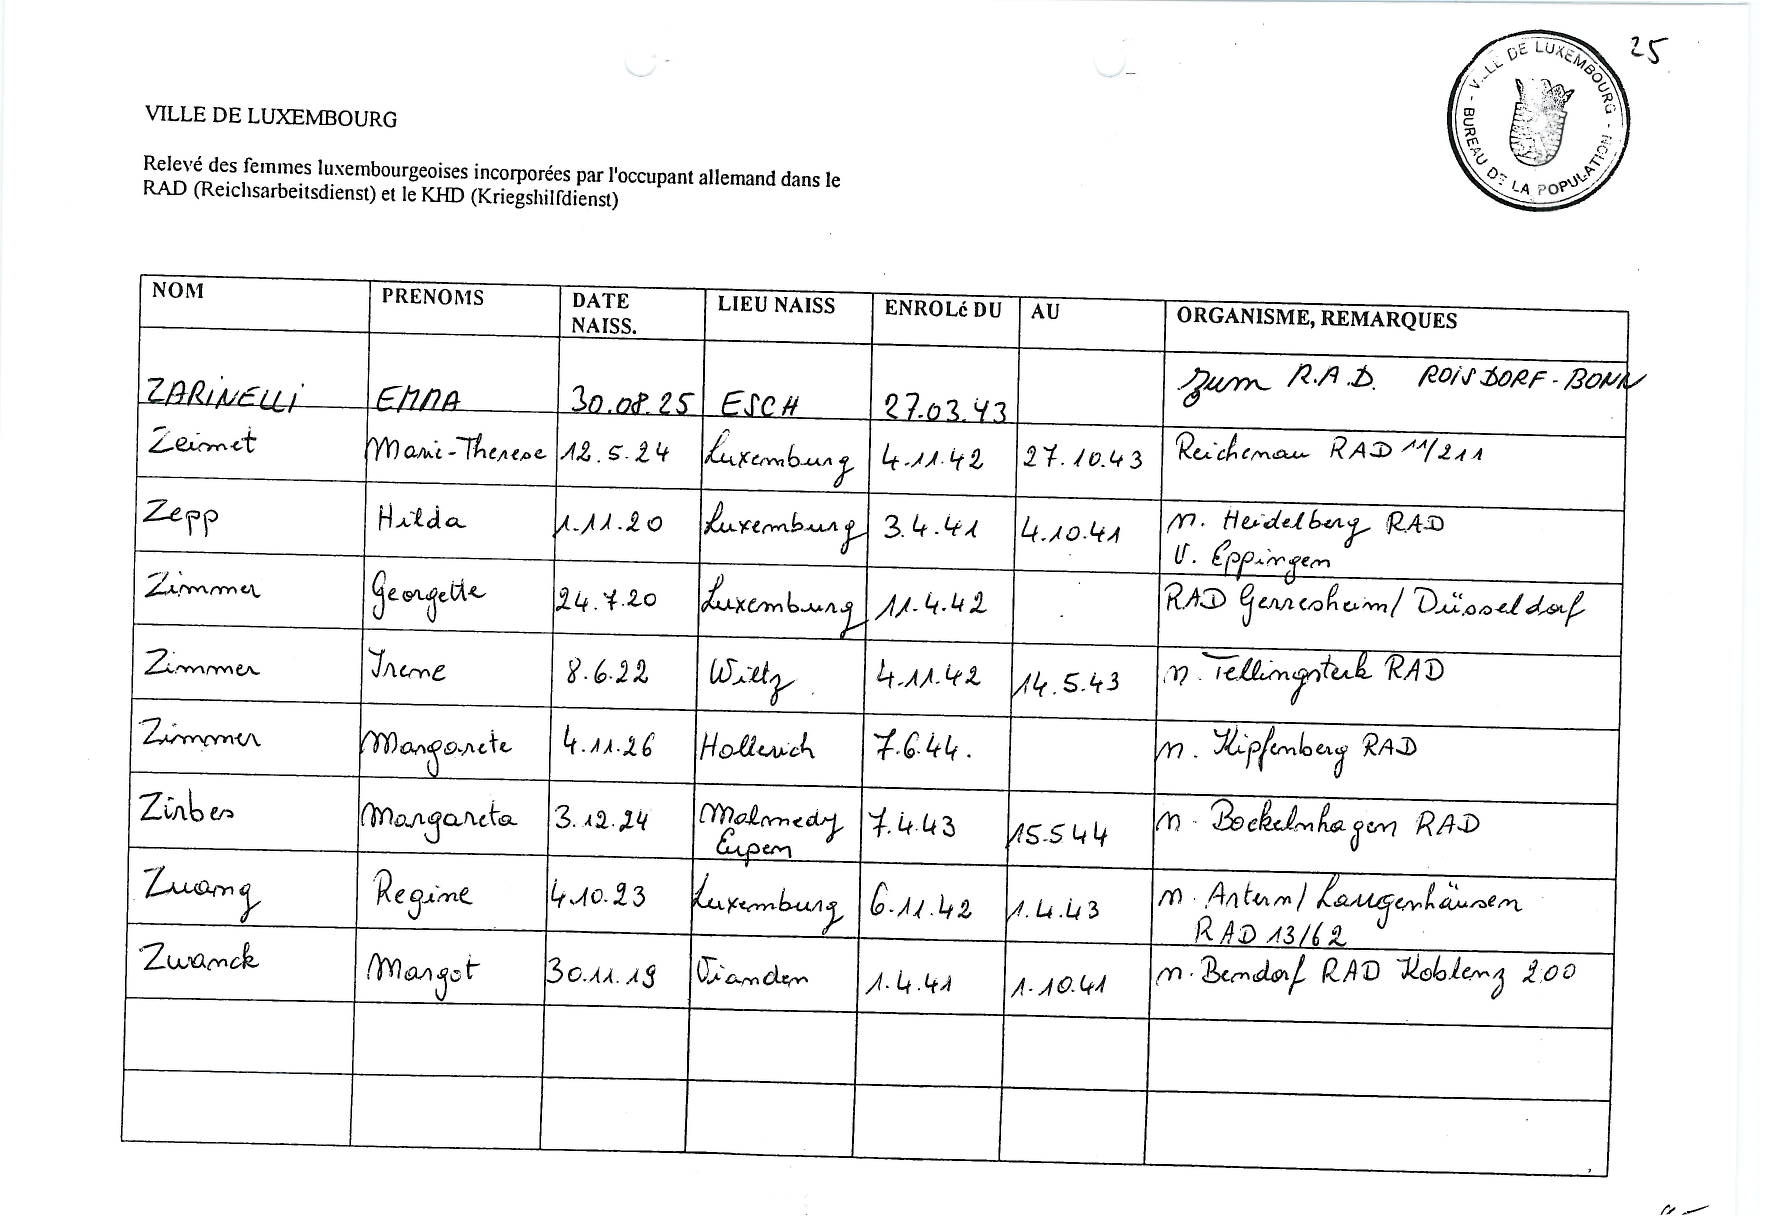 25
VILLE DE LUXEMBOURG - BUREAU DE LA POPULATION -
VILLE DE LUXEMBOURG
Relevé des femmes luxembourgeoises incorporées par l'occupant allemand dans le
RAD (Reichsarbeitsdienst) et le KHD (Kriegshilfdienst)
NOM PRENOMS DATE NAISS. LIEU NAISS ENROLé DU AU ORGANISME, REMARQUES
ZARINELLI EMMA 30.08.25 ESCH 27.03.43 zum R.A.D. ROISDORF-BONN
Zeimet Marie-Therese 12.5.24 Luxemburg 4.11.42 27.10.43 Reichenau RAD 11/211
Zepp Hilda 1.11.20 Luxemburg 3.4.41 4.10.41 n. Heidelberg RAD
v. Eppingen
Zimmer Georgette 24.7.20 Luxemburg 11.4.42 RAD Gerresheim/Düsseldorf
Zimmer Irene 8.6.22 Wiltz 4.11.42 14.5.43 n. Tellingsteck RAD
Zimmer Margarete 4.11.26 Hollerich 7.6.44. n. Kipfenberg RAD
Zirbes Margareta 3.12.24 Malmedy 7.4.43 15.5 44 n. Bockelnhagen RAD
Eupen
Zuang Regine 4.10.23 Luxemburg 6.11.42 1.4.43 n. Artern/Langenhäusen
RAD 13/62
Zwanck Margot 30.11.19 Vianden 1.4.41 1.10.41 n. Bendorf RAD Koblenz 200